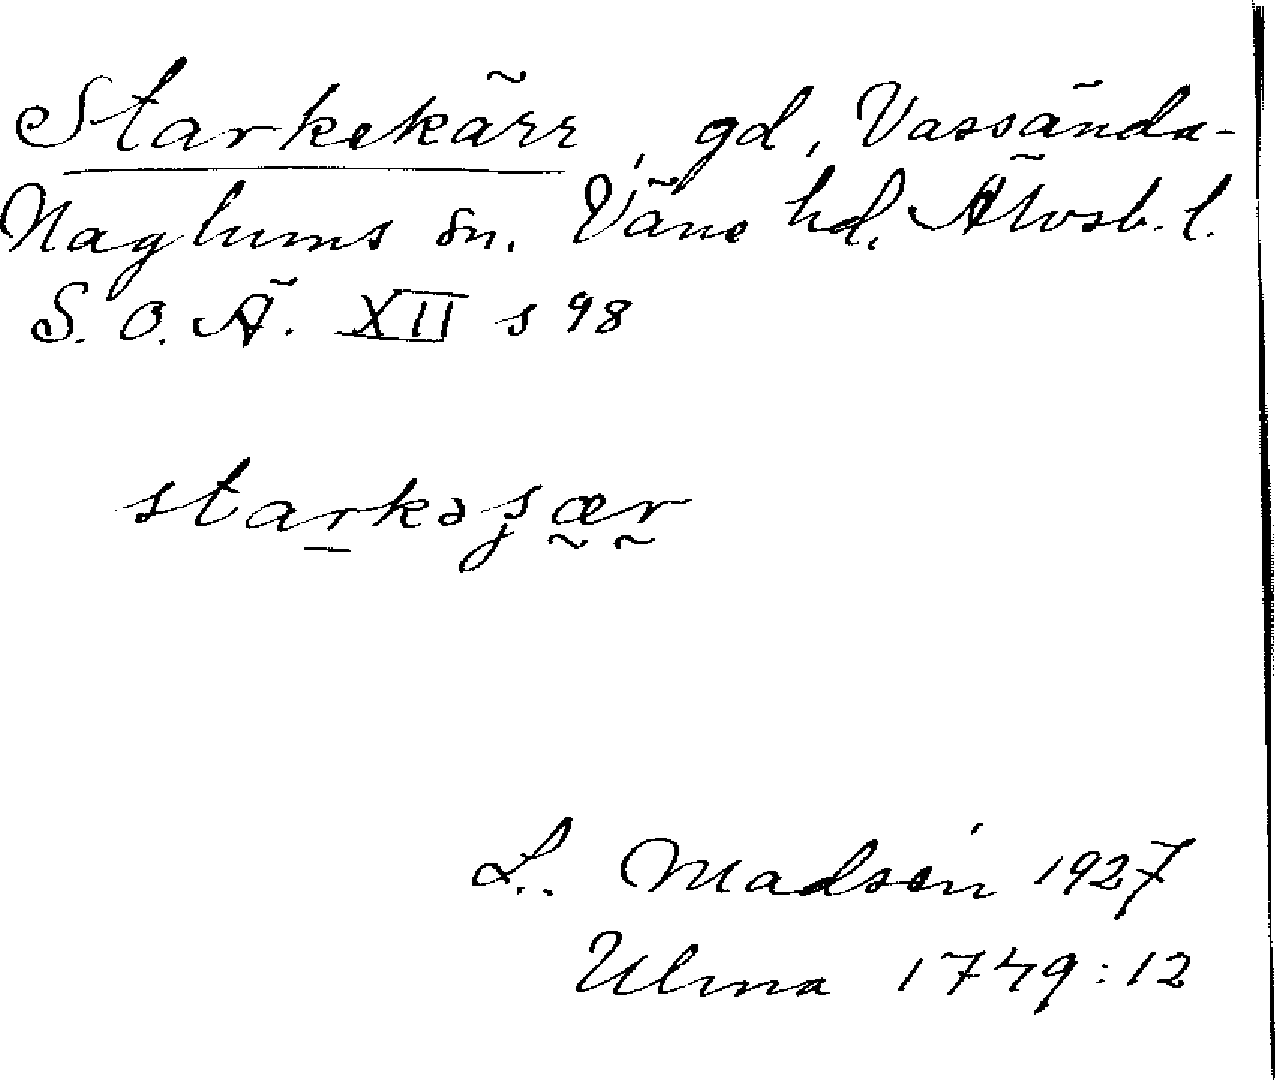 Starkekärr, gd, Vassända-
Naglums sn. Väne hd. Älvsb. l.
S. O. Ä. XII s 98
starkəʂær
L. Madsén 1927
Ulma 1749:12